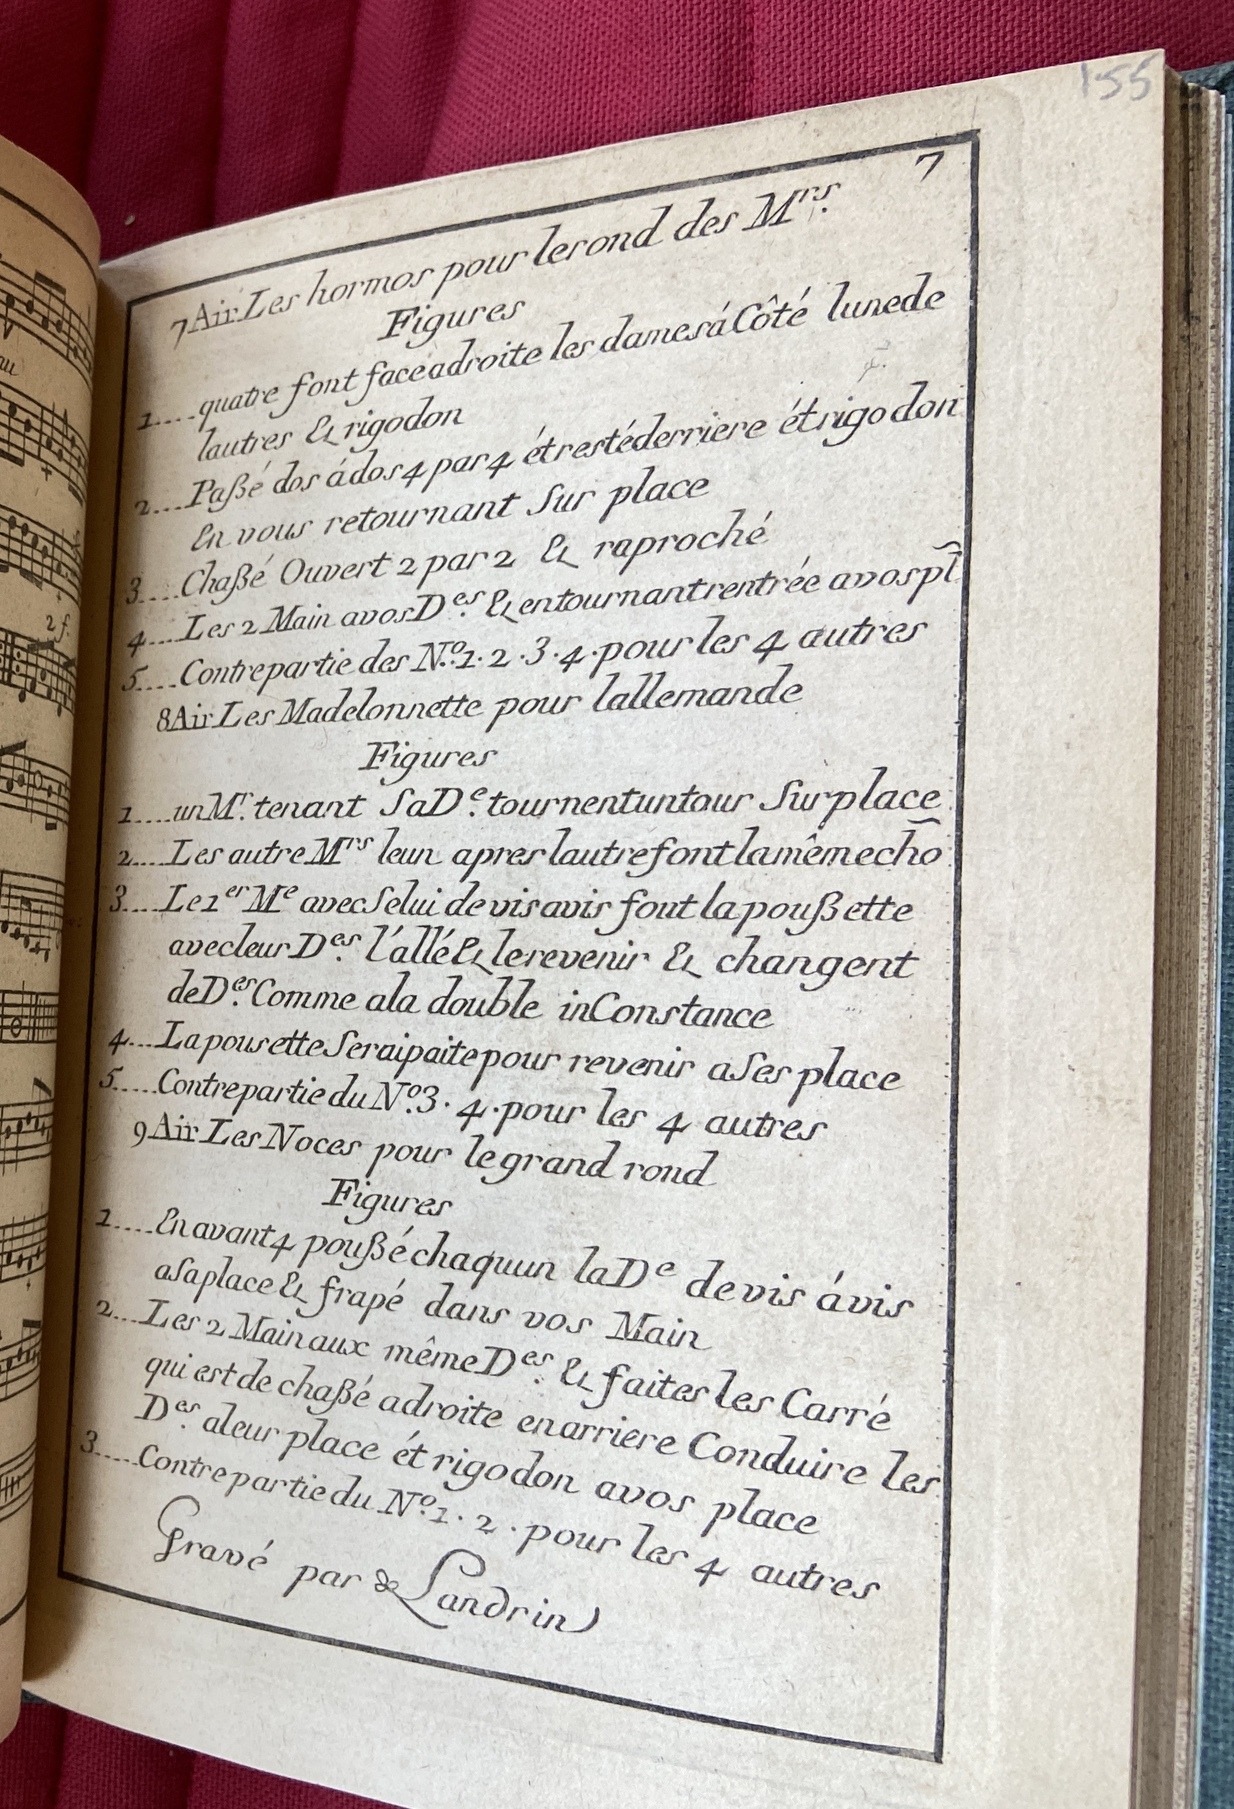 155
7
7 Air Les hormos pour lerond des Mrs.
Figures
1....quatre font face adroite les dames á Côté lunede
lautres & rigodon
2....Paßé dos ádos 4 par 4 ét resté derriere ét rigodon
En vous retournant Sur place
3....Chaßé Ouvert 2 par 2 & raproché
4....Les 2 Main avos Des. & entournant rentrée avos pl
5....Contrepartie des No. 1. 2. 3. 4. pour les 4 autres
8 Air Les Madelonnette pour lallemande
Figures
1....un Mr. tenant Sa De. tournent un tour Sur place
2....Les autre Mrs leun apres lautre font la même cho
3....Le 1er Me avec Selui de vis avis font la poußette
avec leur Des. l'allé & le revenir & changent
de Des. Comme ala double inConstance
4....La pousette Serai paite pour revenir a Ses place
5....Contrepartie du No. 3. 4. pour les 4 autres
9 Air Les Noces pour le grand rond
Figures
1....En avant 4 poußé chaquun la De de vis ávis
aSaplace & frapé dans vos Main
2....Les 2 Main aux même Des. & faites les Carré
qui est de chaßé adroite en arriere Conduire les
Des. aleur place ét rigodon avos place
3....Contrepartie du No. 1. 2. pour les 4 autres
Gravé par Landrin